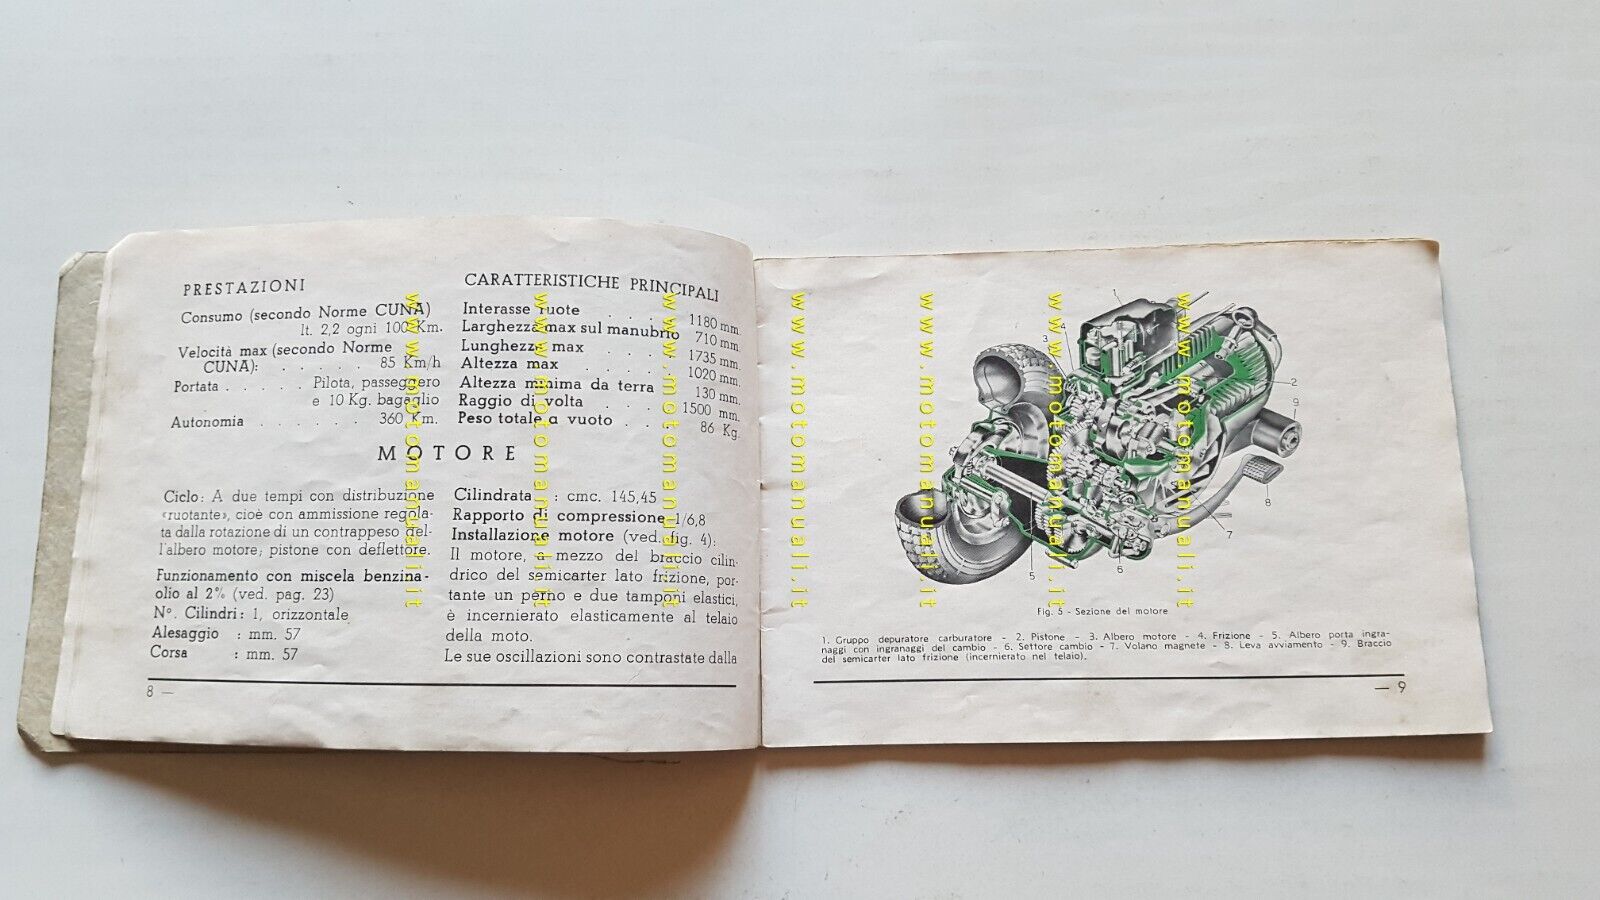 PRESTAZIONI
Consumo (secondo Norme CUNA)
lt. 2,2 ogni 100 Km.
Velocità max (secondo Norme
CUNA): . . . . . . 85 Km/h
Portata . . . . . Pilota, passeggero
e 10 Kg. bagaglio
Autonomia . . . . . . 360 Km.
CARATTERISTICHE PRINCIPALI
Interasse ruote . . . . 1180 mm.
Larghezza max sul manubrio 710 mm.
Lunghezza max . . . . 1735 mm.
Altezza max . . . . . 1020 mm.
Altezza minima da terra 130 mm.
Raggio di volta . . . . 1500 mm.
Peso totale a vuoto . . . 86 Kg.
MOTORE
Ciclo: A due tempi con distribuzione
«ruotante», cioè con ammissione regola-
ta dalla rotazione di un contrappeso del-
l'albero motore; pistone con deflettore.
Funzionamento con miscela benzina-
olio al 2% (ved. pag. 23)
N°. Cilindri: 1, orizzontale
Alesaggio : mm. 57
Corsa : mm. 57
Cilindrata : cmc. 145,45
Rapporto di compressione 1/6,8
Installazione motore (ved. fig. 4):
Il motore, a mezzo del braccio cilin-
drico del semicarter lato frizione, por-
tante un perno e due tamponi elastici,
è incernierato elasticamente al telaio
della moto.
Le sue oscillazioni sono contrastate dalla
8 —
1
4
3
2
9
8
7
5
6
Fig. 5 - Sezione del motore
1. Gruppo depuratore carburatore - 2. Pistone - 3. Albero motore - 4. Frizione - 5. Albero porta ingra-
naggi con ingranaggi del cambio - 6. Settore cambio - 7. Volano magnete - 8. Leva avviamento - 9. Braccio
del semicarter lato frizione (incernierato nel telaio).
— 9
www.motomanuali.it
www.motomanuali.it
www.motomanuali.it
www.motomanuali.it
www.motomanuali.it
www.motomanuali.it
www.motomanuali.it